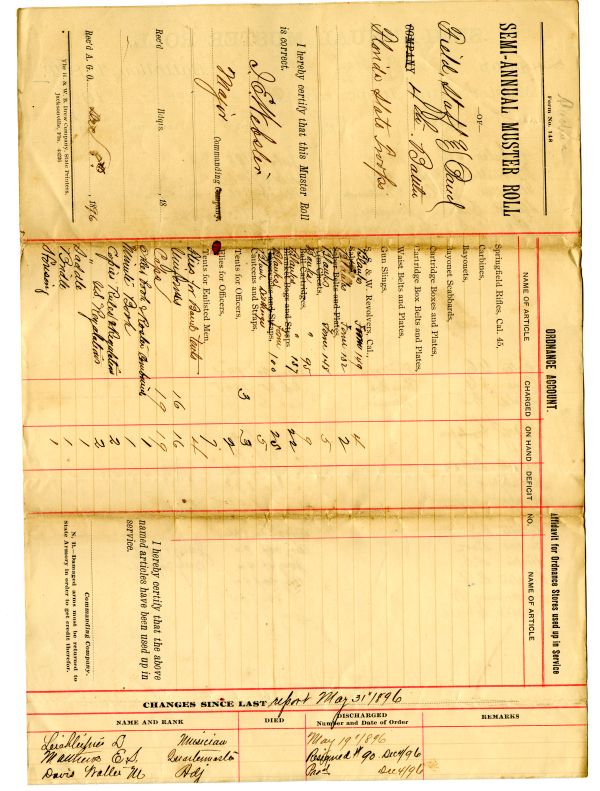 Form No. 148
SEMI-ANNUAL MUSTER ROLL
—OF—
Field, Staff & Band
COMPANY 4th Battn
Florida State Troops
I hereby certify that this Muster Roll
is correct.
J. E. Webster
Major Commanding Company.
Rec'd Hdqis. , 18
Rec'd A. G. O. Dec , 1896
The H. & W. B. Drew Company, State Printers,
Jacksonville, Fla.
ORDNANCE ACCOUNT.
NAME OF ARTICLE CHARGED ON HAND DEFICIT
Springfield Rifles, Cal. 45,
Carbines,
Bayonets,
Bayonet Scabbards,
Cartridge Boxes and Plates,
Cartridge Box Belts and Plates,
Waist Belts and Plates,
Gun Slings,
S. & W. Revolvers, Cal.,
Blanks Form 149 4
Blanks Form 132 2
Blanks Form 145 5
Blanks " 95 9
Blanks " 137 22
Blanks Form 100 25
Canteens and Straps, 5
Tents for Officers, 3 3
Flies for Officers, 2
Tents for Enlisted Men, 7
Flies for Band tents 4
Uniforms 16 16
Caps 19 19
Order Book & Letter Book Combined 1
Minute Book 1
Copies Revised Regulations 2
" Regulations 2
Saddle 1
Bridle 1
1
Affidavit for Ordnance Stores used up in Service
NO. NAME OF ARTICLE
I hereby certify that the above
named articles have been used up in
service.
Commanding Company.
N. B.—Damaged arms must be returned to
State Armory in order to get credit therefor.
CHANGES SINCE LAST report May 31st 1896
NAME AND RANK DIED DISCHARGED Number and Date of Order REMARKS
D Musician May 19th 1896
Matthews E.S. Quartermaster Resigned # 90 Dec 4/96
Davis Walter M Adj Dec 4/96